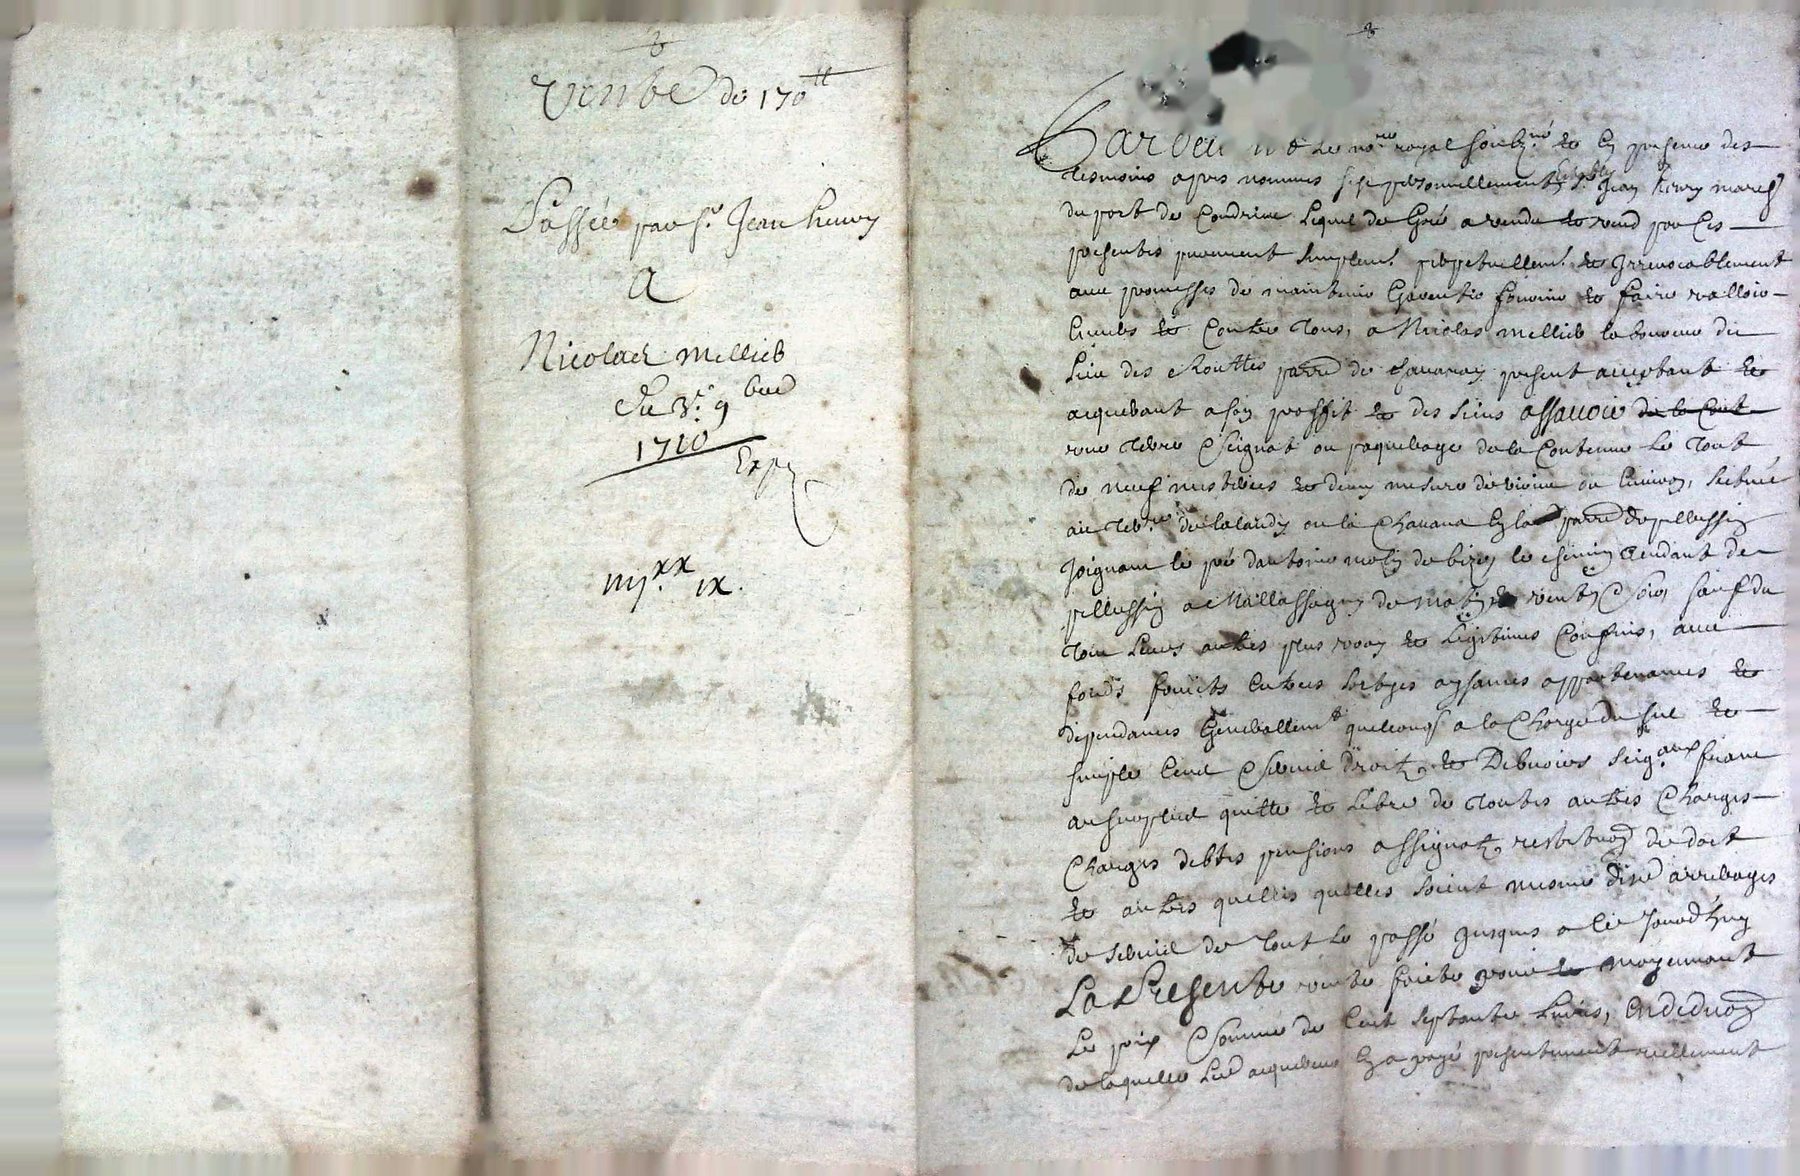 Vente de 170 tt
Passée par Sr. Jean henry
A
Nicolas mellied
Du 3e. 9 bre
1710
Exp
iiij.xx ix.
Pardevant Le no.re royal soubz.né & En presence des
tesmoins apres nommes personnellement estably Sr. Jean henry march
du port de Condrieu Lequel de Gré a vendu & vend par Ces
presentes purement simplemt. perpetuellemt. & Irrevocablement
avec promesses de maintenir Garentir & faire valloir
Envers & Contre tous, a Nicolas mellied laboureur du
Lieu des Routtes parre de Chavanay present acceptant &
acquerant a son proffit & des siens assavoir de la Cont
une terre ou paquerage de la Contenue Le tout
de neuf & deux mesure ou Environ, scitué
au terr.re ou la Chavana En la parre de pellussin
Joignant le pré dantoine le chemin tendant de
pellussin a Mallassagny de matin & vent & soir, sauf du
tout Leurs autres plus vrays & Legitimes Confins, avec
fonds fruicts Entrees sorties aysances appartenances &
dependances Generallemt quelconqs a la Charge du
simple Cens & servis droits & Debvoirs Seig.aux
au surplus quitte & Libre de toutes autres Charges
Charges debtes pensions assignats restituon de dost
& autres quelles quelles soient mesme dire arrerages
de servis de tout Le passé Jusques a Ce Jourd'huy
La Presente vente faicte pour & moyennant
Le prix & somme de Cent septante Livres, En deduon
de laquelle Led acquereur En a payé presentement reellement